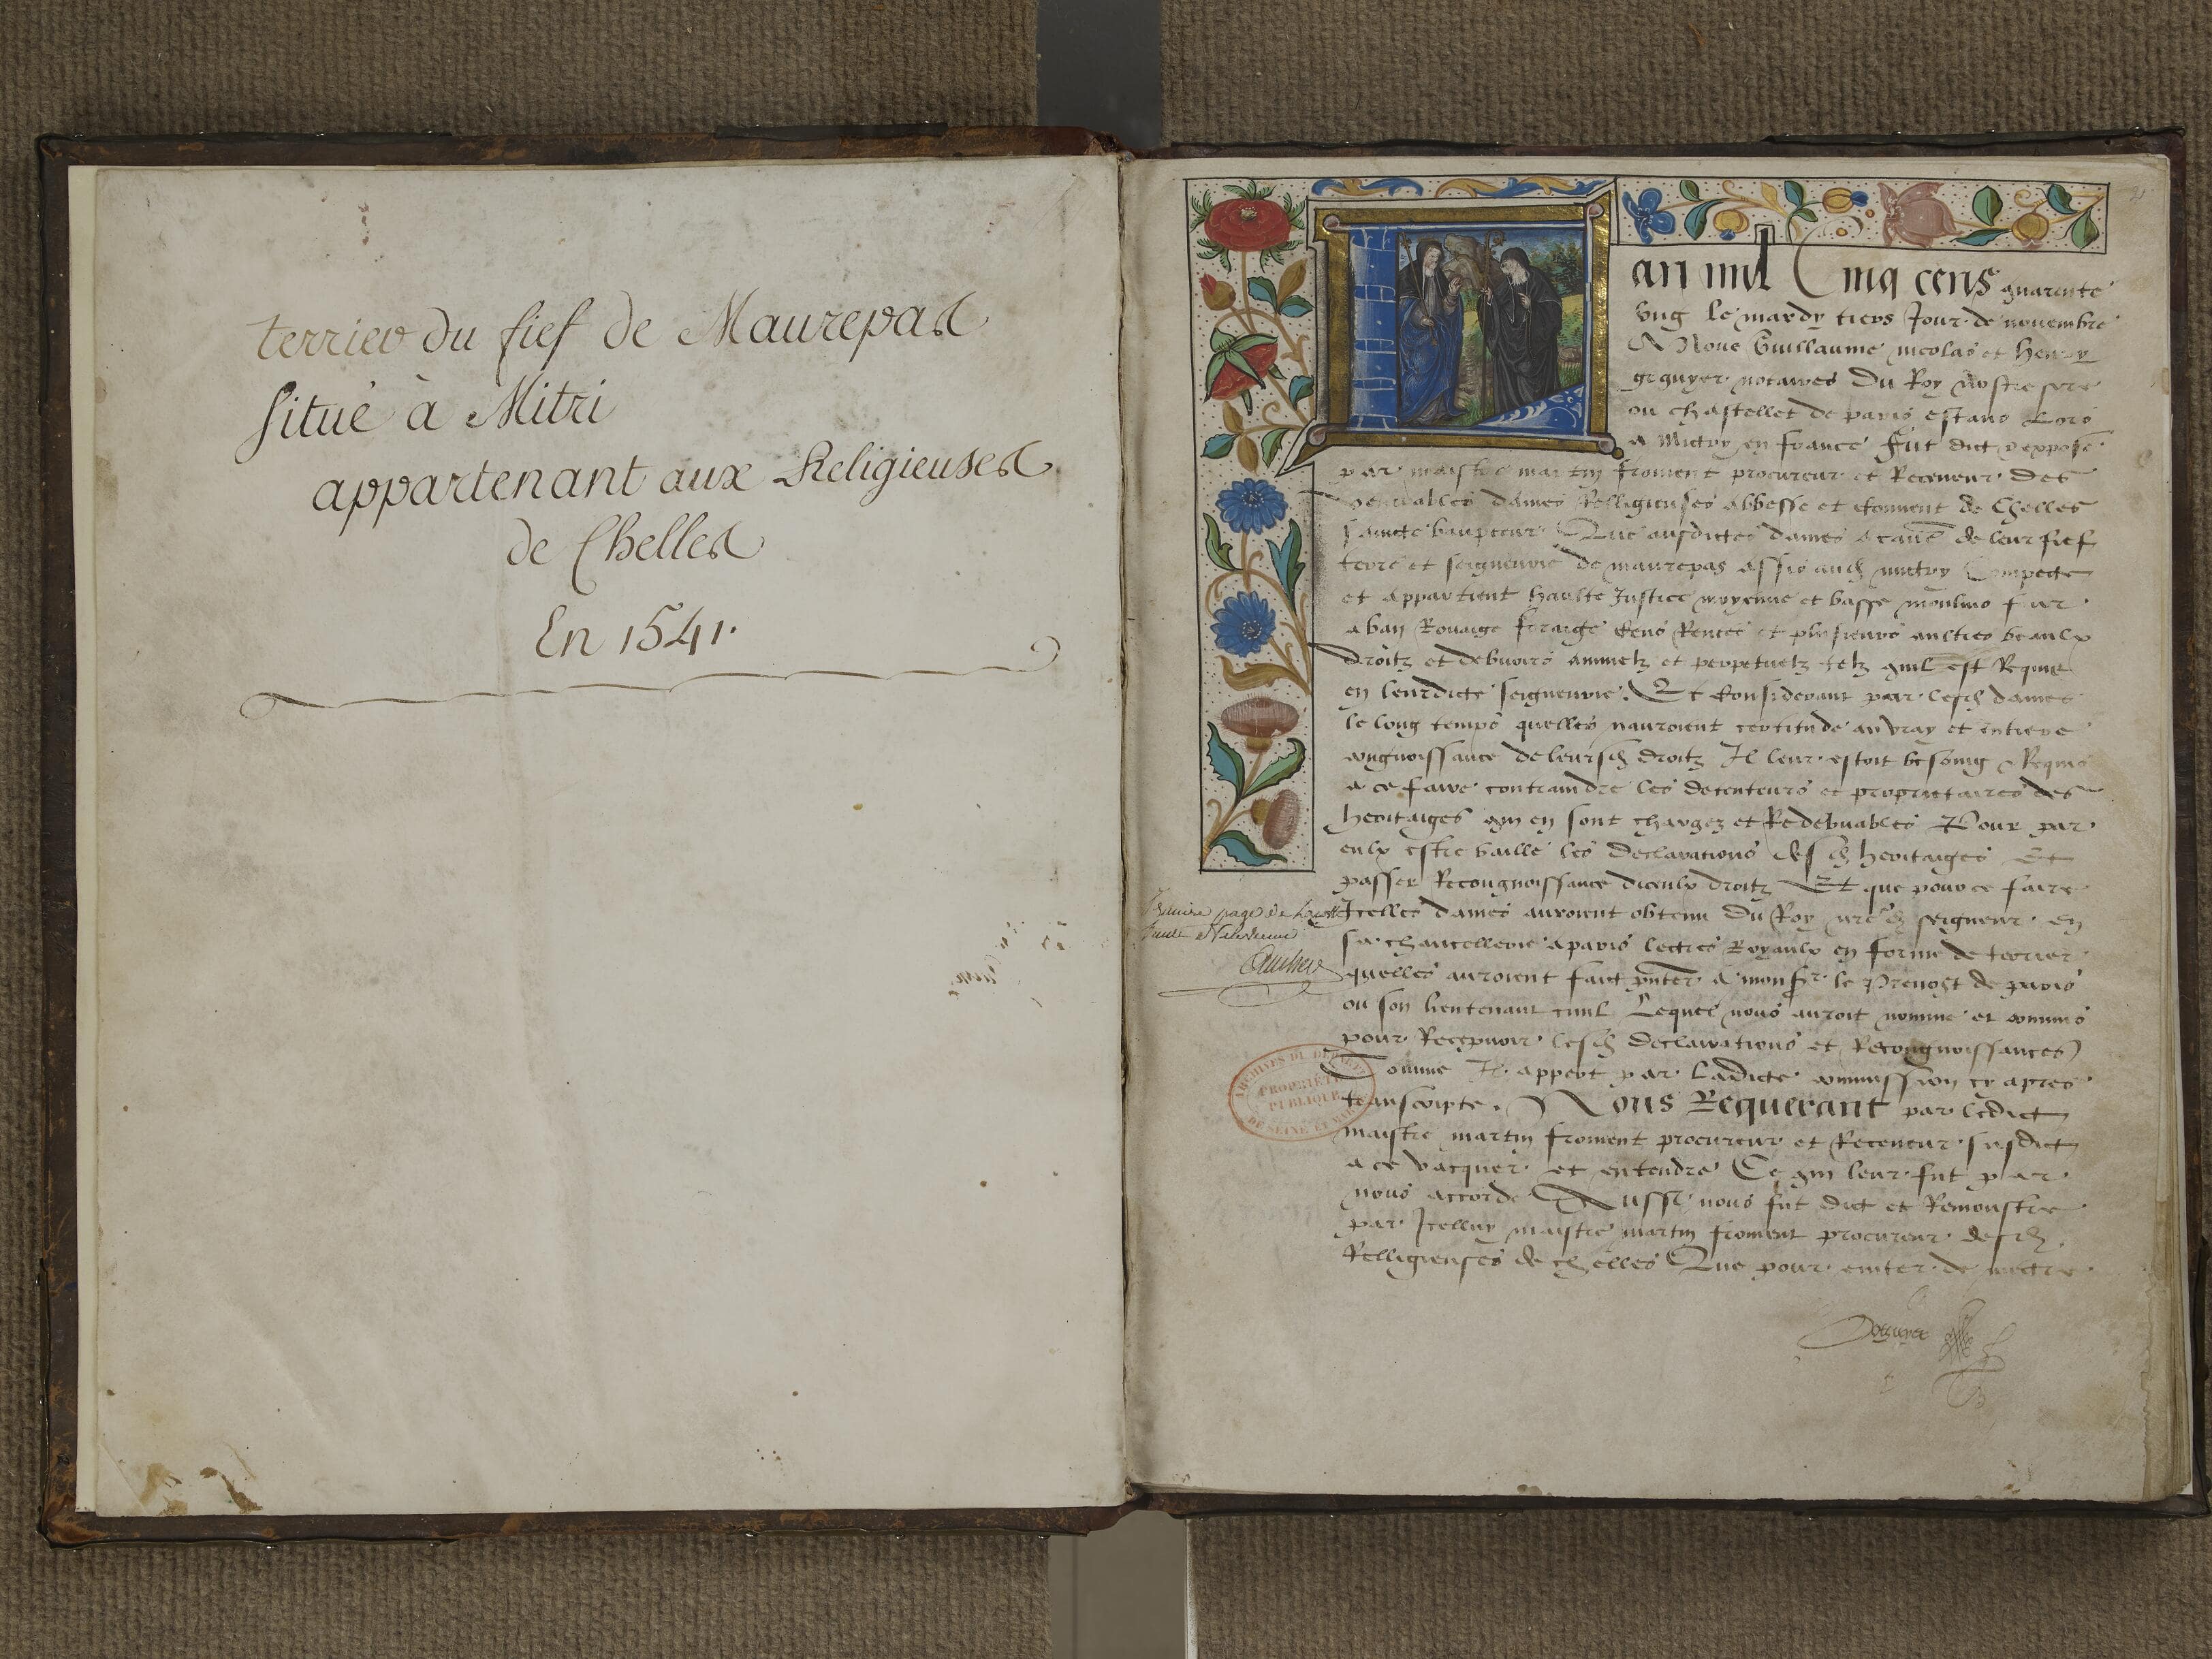 terrier du fief de Maurepas
situé à Mitri
appartenant aux Religieuses
de Chelles
En 1541.
Lan mil Cinq cens quarente
ung le mardy tiers Jour de novembre
A Nous Guillaume nicolas et Henry
notaires Du Roy nostre sire
ou chastellet de paris estans Lors
a Mictry en france fut dict & expose
par maistre martin froment procureur et Receveur des
venerables dames Relligieuses abbesse et couvent de Chelles
saincte baupteur Que ausdictes dames a cause de leur fief
terre et seigneurie de maurepas assis aud mictry Compecte
et appartient haulte Justice moyenne et basse moulins four
a ban Rouaige foraige Cens Rentes et plusieurs aultres beaulx
droitz et debvoirs annuelz et perpetuelz telz quil est Requis
en leurdicte seigneurie. Et considerant par lesd dames
le long temps quelles nauroient certitude au vray et entiere
congnoissance de leursd droitz Il leur estoit besoing & Requis
a ce faire contraindre les detenteurs et proprietaires des
heritaiges qui en sont chargez et Redebvables Pour par
eulx estre baille les declarations desd heritaiges Et
passer Recongnoissance diceulx droitz Et que pour ce faire
Icelles dames auroient obtenu du Roy nred seigneur en
sa chancellerie a paris lectres Royaulx en forme de terrier
quelles auroient faict pnter a monsr le Prevost de paris
ou son lieutenant civil Lequel nous auroit nomme et commis
pour Recepvoir lesd declarations et Recongnoissances
Comme Il appert par Ladicte commission cy apres
transcripte. Nous Requerant par ledict
maistre martin froment procureur et Receveur susdict
a ce vacquer et entendre Ce qui leur fut par
nous accorde Aussi nous fut dict et Remonstre
par Icelluy maistre martin froment procureur desd
Relligieuses de chelles Que pour eviter de mectre
page de
ARCHIVES DU DÉPART
PROPRIÉTÉ
PUBLIQUE
DE SEINE ET MARNE